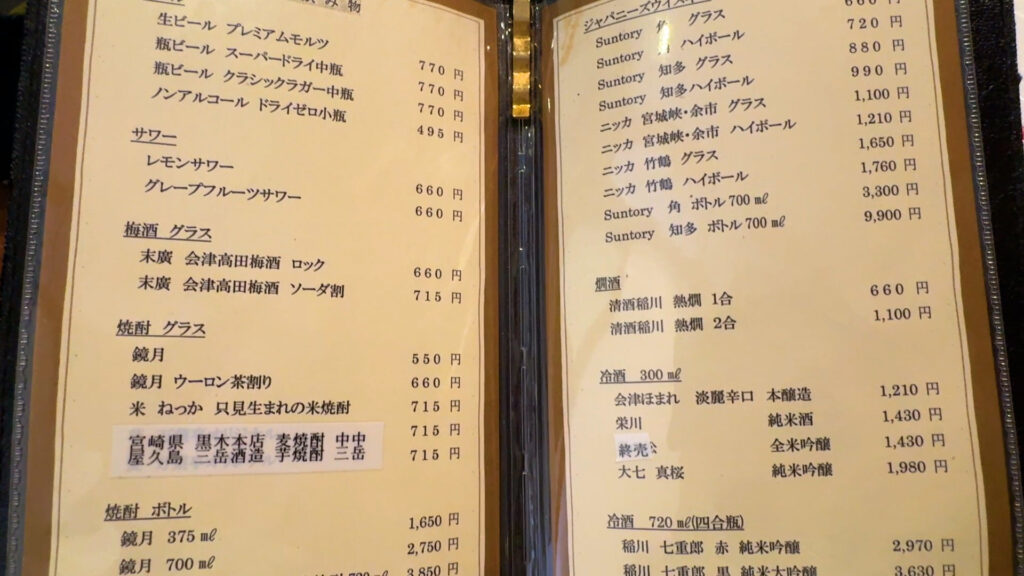 み物
生ビール プレミアムモルツ 770 円
瓶ビール スーパードライ中瓶 770 円
瓶ビール クラシックラガー中瓶 770 円
ノンアルコール ドライゼロ小瓶 495 円
サワー
レモンサワー 660 円
グレープフルーツサワー 660 円
梅酒 グラス
末廣 会津高田梅酒 ロック 660 円
末廣 会津高田梅酒 ソーダ割 715 円
焼酎 グラス
鏡月 550 円
鏡月 ウーロン茶割り 660 円
米 ねっか 只見生まれの米焼酎 715 円
宮崎県 黒木本店 麦焼酎 中中 715 円
屋久島 三岳酒造 芋焼酎 三岳 715 円
焼酎 ボトル
鏡月 375 ㎖ 1,650 円
鏡月 700 ㎖ 2,750 円
3,850 円
ジャパニーズウイスキー
Suntory 角 グラス 660 円
Suntory 角 ハイボール 720 円
Suntory 知多 グラス 880 円
Suntory 知多 ハイボール 990 円
ニッカ 宮城峡・余市 グラス 1,100 円
ニッカ 宮城峡・余市 ハイボール 1,210 円
ニッカ 竹鶴 グラス 1,650 円
ニッカ 竹鶴 ハイボール 1,760 円
Suntory 角 ボトル 700 ㎖ 3,300 円
Suntory 知多 ボトル 700 ㎖ 9,900 円
燗酒
清酒稲川 熱燗 1合 660 円
清酒稲川 熱燗 2合 1,100 円
冷酒 300 ㎖
会津ほまれ 淡麗辛口 本醸造 1,210 円
栄川 純米酒 1,430 円
終売 全米吟醸 1,430 円
大七 真桜 純米吟醸 1,980 円
冷酒 720 ㎖(四合瓶)
稲川 七重郎 赤 純米吟醸 2,970 円
稲川 七重郎 黒 純米大吟醸 3,630 円